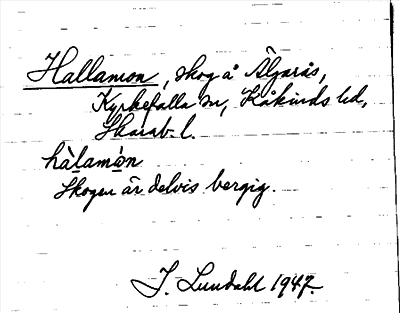 Hallamon, skog å Älgarås,
Kyrkefalla sn, Kåkinds hd,
Skarab. l.
hàlamòn
Skogen är delvis bergig.
J. Lundahl 1947.